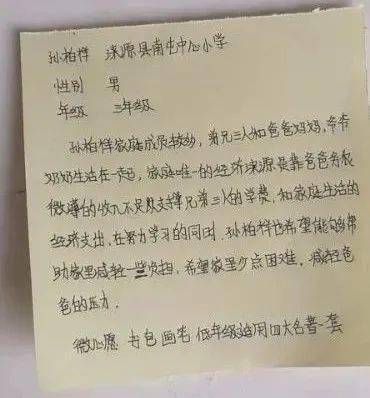 孙柏样 涞源县南屯中心小学
性别 男
年级 三年级
孙柏样家庭成员较多，弟兄三人和爸爸妈妈，爷爷
奶奶生活在一起，家庭唯一的经济来源是靠爸爸务农
微薄的收入不足以支撑兄弟三人的学费，和家庭生活的
经济支出，在努力学习的同时，孙柏样也希望能够帮
助家里减轻一些负担，希望家里少点困难，减轻爸
爸的压力．
微心愿 书包 画笔 低年级适用四大名著一套